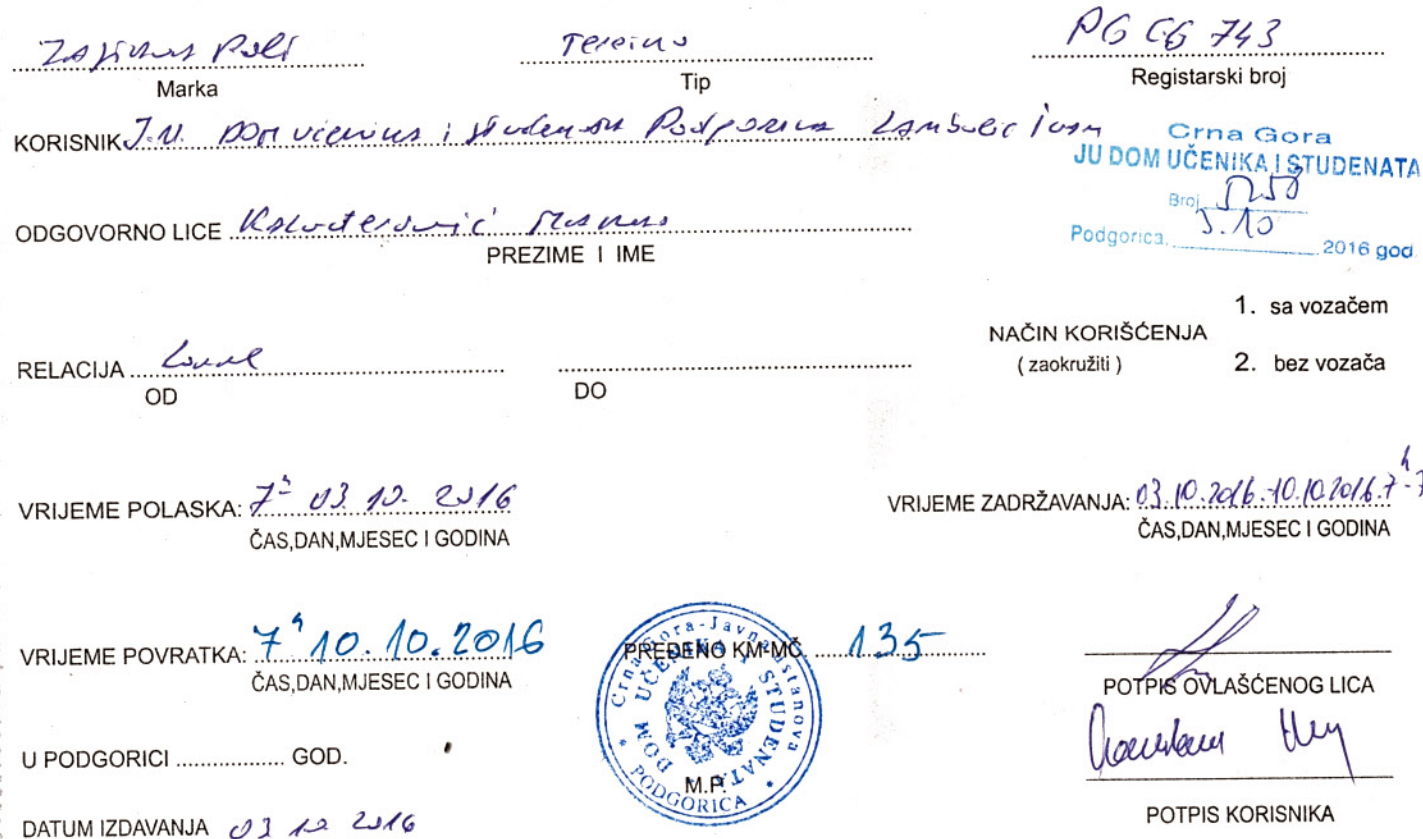 PG CG 743
Marka Tip Registarski broj
KORISNIK J.U. Dom učenika i studenata Podgorica
Crna Gora
JU DOM UČENIKA I STUDENATA
Broj
Podgorica, 3.10 2016 god
ODGOVORNO LICE
PREZIME I IME
RELACIJA
OD DO
NAČIN KORIŠĆENJA
( zaokružiti )
1. sa vozačem
2. bez vozača
VRIJEME POLASKA: 7 03 10. 2016
ČAS,DAN,MJESEC I GODINA
VRIJEME ZADRŽAVANJA: 03.10.2016.-10.10.2016. 7h-7
ČAS,DAN,MJESEC I GODINA
VRIJEME POVRATKA: 7h 10.10.2016
ČAS,DAN,MJESEC I GODINA
PREĐENO KM-MČ 135
Crna Gora-Javna ustanova
DOM UČENIKA I STUDENATA
PODGORICA
M.P.
POTPIS OVLAŠĆENOG LICA
U PODGORICI ................. GOD.
POTPIS KORISNIKA
DATUM IZDAVANJA 03 10 2016